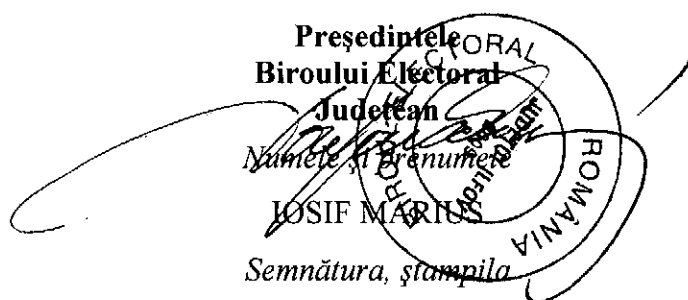 Președintele
Biroului Electoral
Județean
Numele și prenumele
IOSIF MARIUS
Semnătura, ștampila
BIROUL ELECTORAL
ROMÂNIA
JUDEȚUL ILFOV